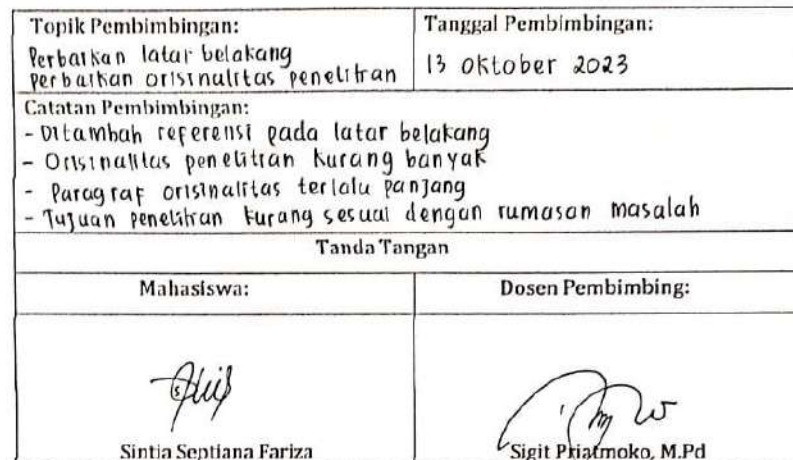 Topik Pembimbingan:
Perbaikan latar belakang
perbaikan orisinalitas penelitian
Tanggal Pembimbingan:
13 oktober 2023
Catatan Pembimbingan:
- Ditambah referensi pada latar belakang
- Orisinalitas penelitian kurang banyak
- Paragraf orisinalitas terlalu panjang
- Tujuan penelitian kurang sesuai dengan rumusan masalah
Tanda Tangan
Mahasiswa:
Dosen Pembimbing:
Sintia Septiana Fariza
Sigit Priatmoko, M.Pd